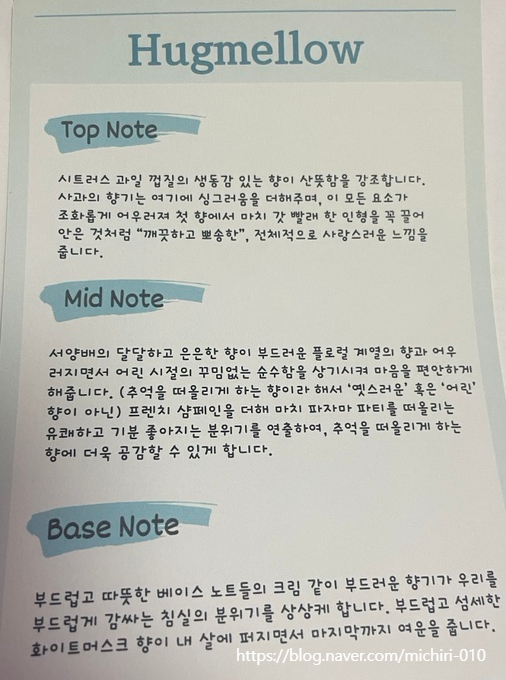 Hugmellow
Top Note
시트러스 과일 껍질의 생동감 있는 향이 산뜻함을 강조합니다.
사과의 향기는 여기에 싱그러움을 더해주며, 이 모든 요소가
조화롭게 어우러져 첫 향에서 마치 갓 빨래 한 인형을 꼭 끌어
안은 것처럼 “깨끗하고 뽀송한”, 전체적으로 사랑스러운 느낌을
줍니다.
Mid Note
서양배의 달달하고 은은한 향이 부드러운 플로럴 계열의 향과 어우
러지면서 어린 시절의 꾸밈없는 순수함을 상기시켜 마음을 편안하게
해줍니다. (추억을 떠올리게 하는 향이라 해서 ‘옛스러운’ 혹은 ‘어린’
향이 아닌) 프렌치 샴페인을 더해 마치 파자마 파티를 떠올리는
유쾌하고 기분 좋아지는 분위기를 연출하여, 추억을 떠올리게 하는
향에 더욱 공감할 수 있게 합니다.
Base Note
부드럽고 따뜻한 베이스 노트들의 크림 같이 부드러운 향기가 우리를
부드럽게 감싸는 침실의 분위기를 상상케 합니다. 부드럽고 섬세한
화이트머스크 향이 내 살에 퍼지면서 마지막까지 여운을 줍니다.
https://blog.naver.com/michiri-010